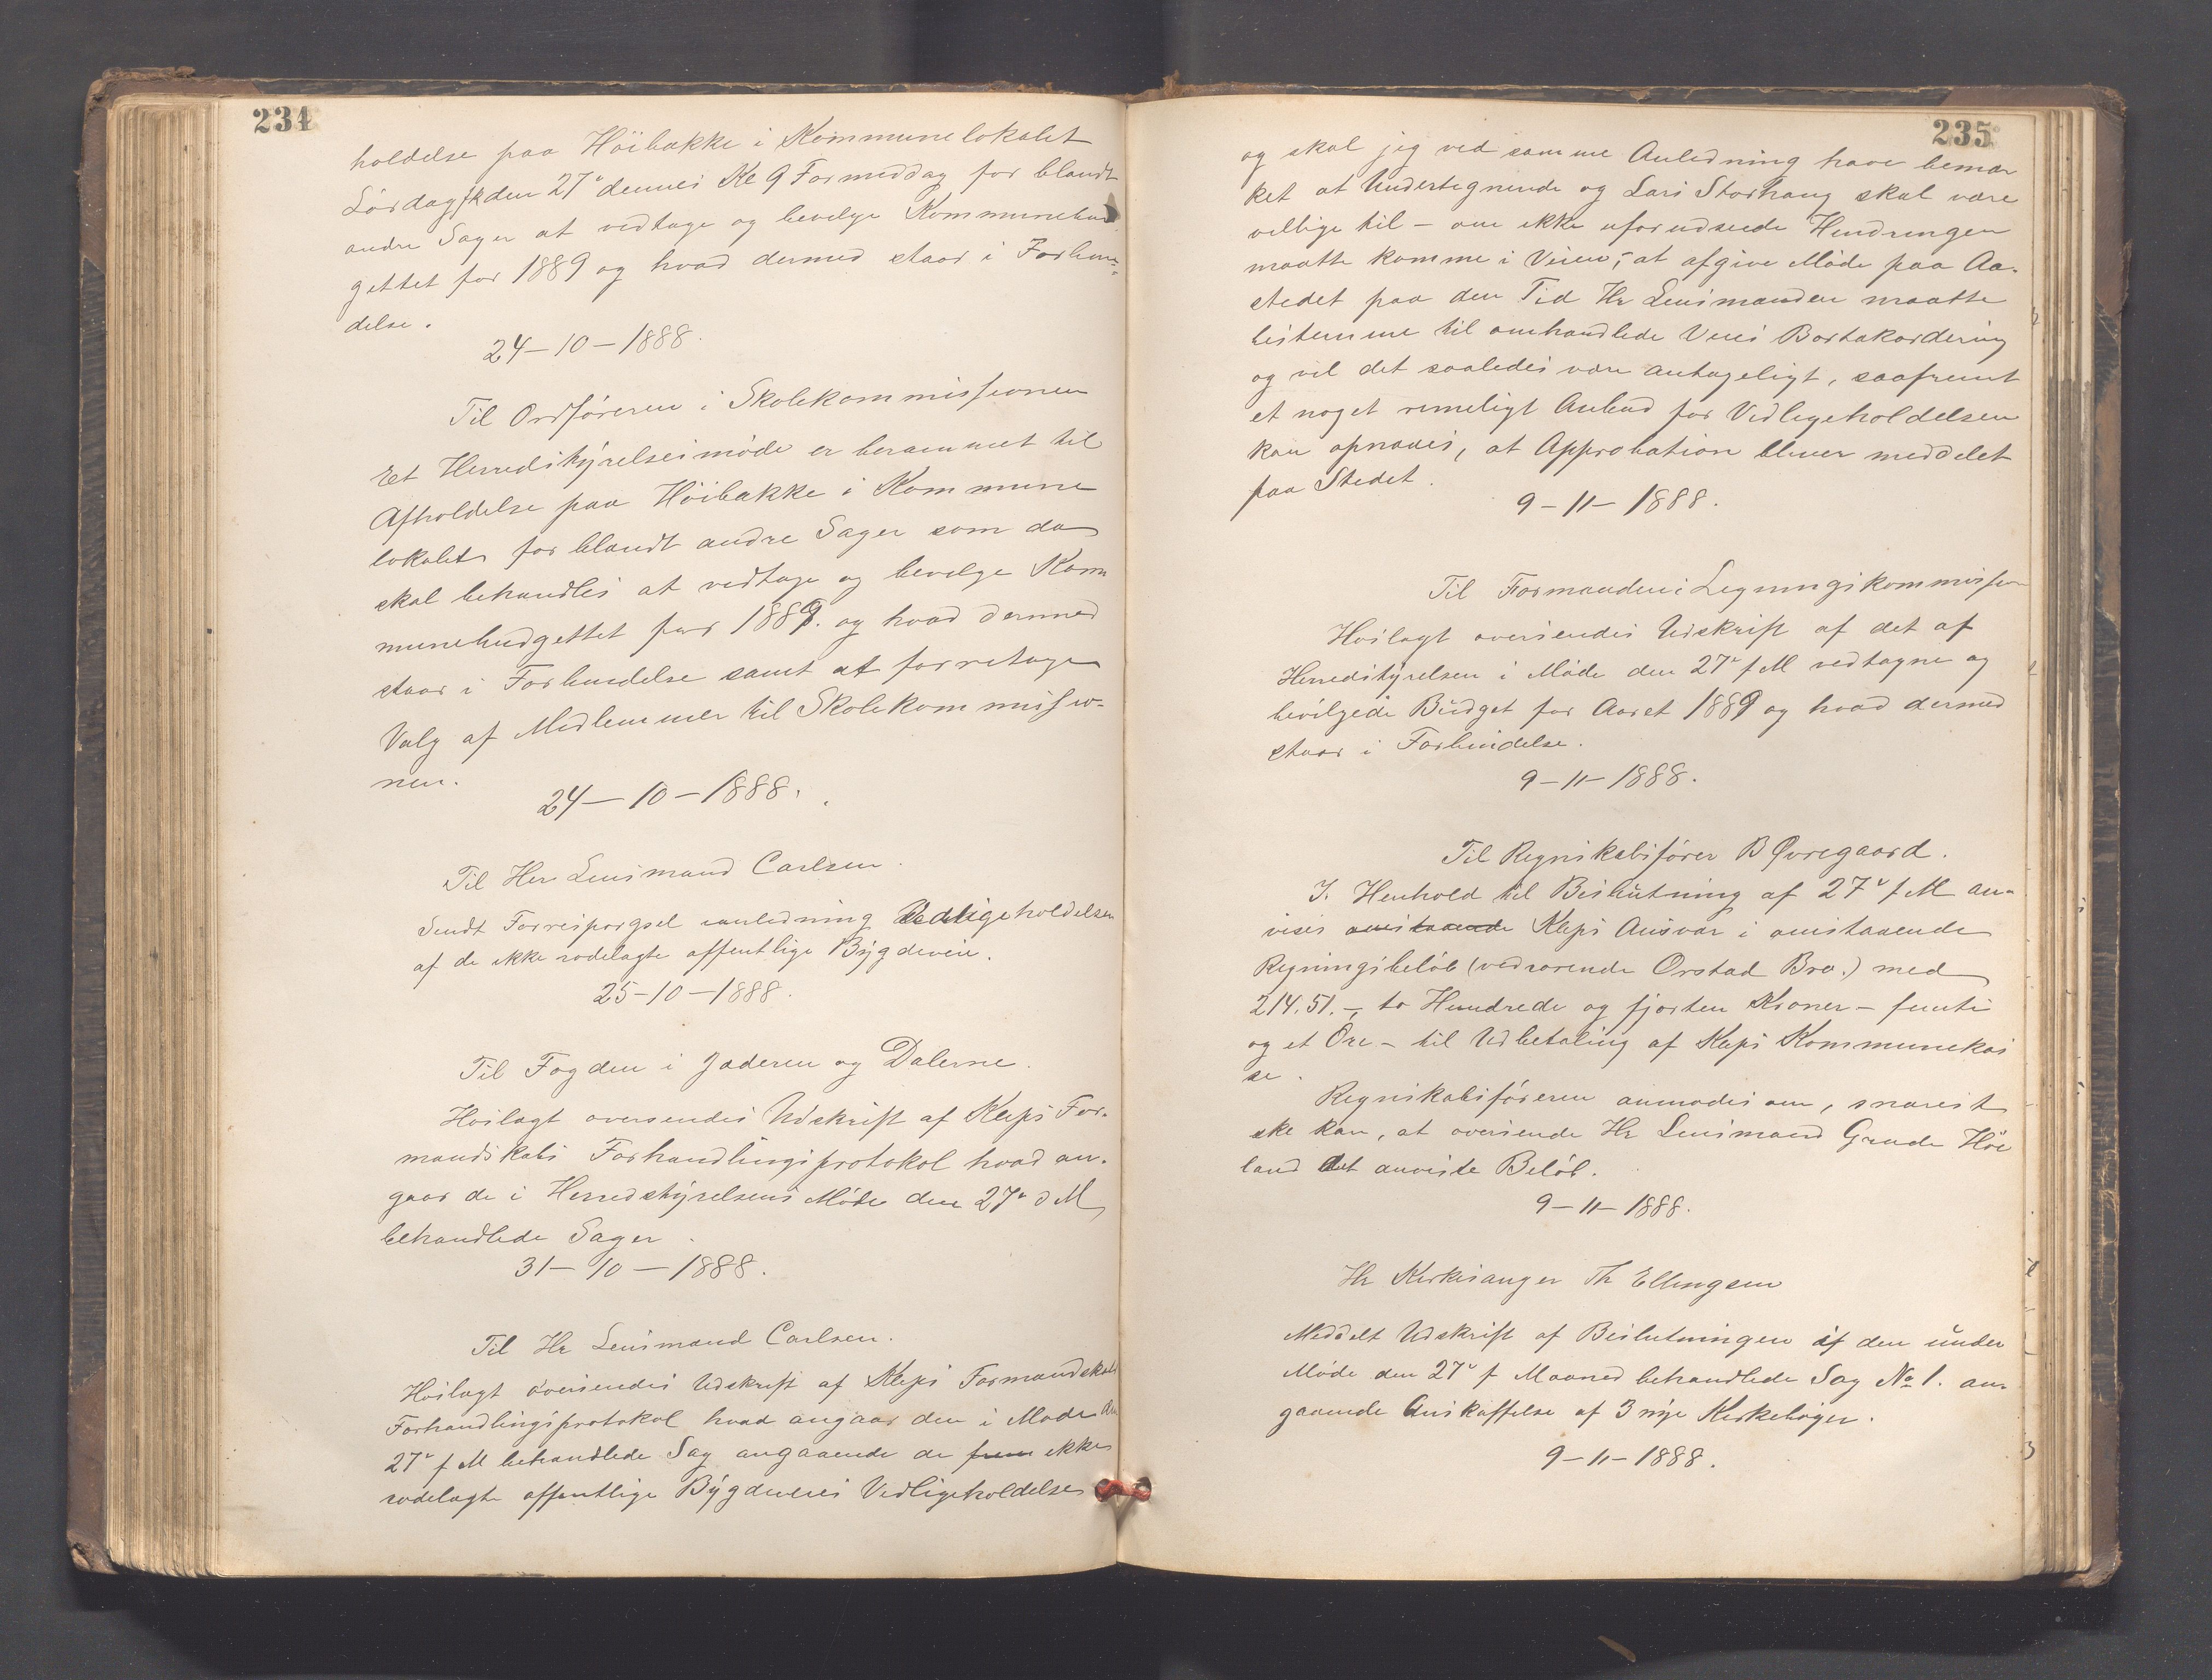 234
holdelse paa Höibakke i Kommunelokalet
Lördag den 27de dennes Kl 9 Formiddag for blandt
andre Sager at vedtage og bevilge Kommunebud
gettet for 1889 og hvad dermed staar i Forbin-
delse.
24-10-1888.
Til Ordföreren i Skolekommissionen
Et Herredstyrelsesmöde er berammet til
Afholdelse paa Höibakke i Kommune
lokalet for blandt andre Sager som da
skal behandles at vedtage og bevilge Kom
munebudgettet for 1889. og hvad dermed
staar i Forbindelse samt at forretage
Valg af Medlemmer til Skolekommissio-
nen.
24-10-1888.
Til Herr Lensmand Carlsen.
Sendt Forrespörgsel anledning Vedligeholdelsen
af de ikke rodelagte offentlige Bygdeveie.
25-10-1888.
Til Fogden i Jæderen og Dalerne.
Hoslagt oversendes Udskrift af Kleps For-
mandskabs Forhandlingsprotokol hvad an-
gaar de i Herredstyrelsens Möde den 27de d M
behandlede Sager.
31-10-1888.
Til Hr Lensmand Carlsen.
Hoslagt oversendes Udskrift af Kleps Formandskabs
Forhandlingsprotokol hvad angaar den i Möde den
27de f M behandlede Sag angaaende de ikke
rodelagte offentlige Bygdeveies Vedligeholdelse
235
og skal jeg ved samme Anledning have bemær
ket at Undertegnede og Lars Storhaug skal være
villige til - om ikke uforudseede Hindringer
maatte komme i Veien, - at afgive Möde paa Aa-
stedet paa den Tid Hr Lensmanden maatte
bestemme til omhandlede Veies Bortakordering
og vil det saaledes være antageligt, saafremt
et noget rimeligt Anbud for Vedligeholdelsen
kan opnaaes, at Approbation bliver meddelet
paa Stedet.
9-11-1888.
Til Formanden i Ligningskommission
Hoslagt oversendes Udskrift af det af
Herredstyrelsen i Möde den 27de f M vedtagne og
bevilgede Budget for Aaret 1889 og hvad dermed
staar i Forbindelse.
9-11-1888.
Til Regnskabsförer B Øvregaard.
I. Henhold til Beslutning af 27de f M an-
vises omstaaende Kleps Ansvar i omstaaende
Regningsbelöb (vedrörende Orstad Bro.) med
214.51. - to Hundrede og fjorten Kroner - femti
og et Öre - til Udbetaling af Kleps Kommunekas
se.
Regnskabsföreren anmodes om, snarest
ske kan, at oversende Hr Lensmand Grude Höi
land det anviste Belöb.
9-11-1888.
Hr Kirkesanger Th Ellingsen
Meddelt Udskrift af Beslutningen af den under
Möde den 27de f Maaned behandlede Sag No 1. an-
gaaende Anskaffelse af 3 nye Kirkeböger.
9-11-1888.